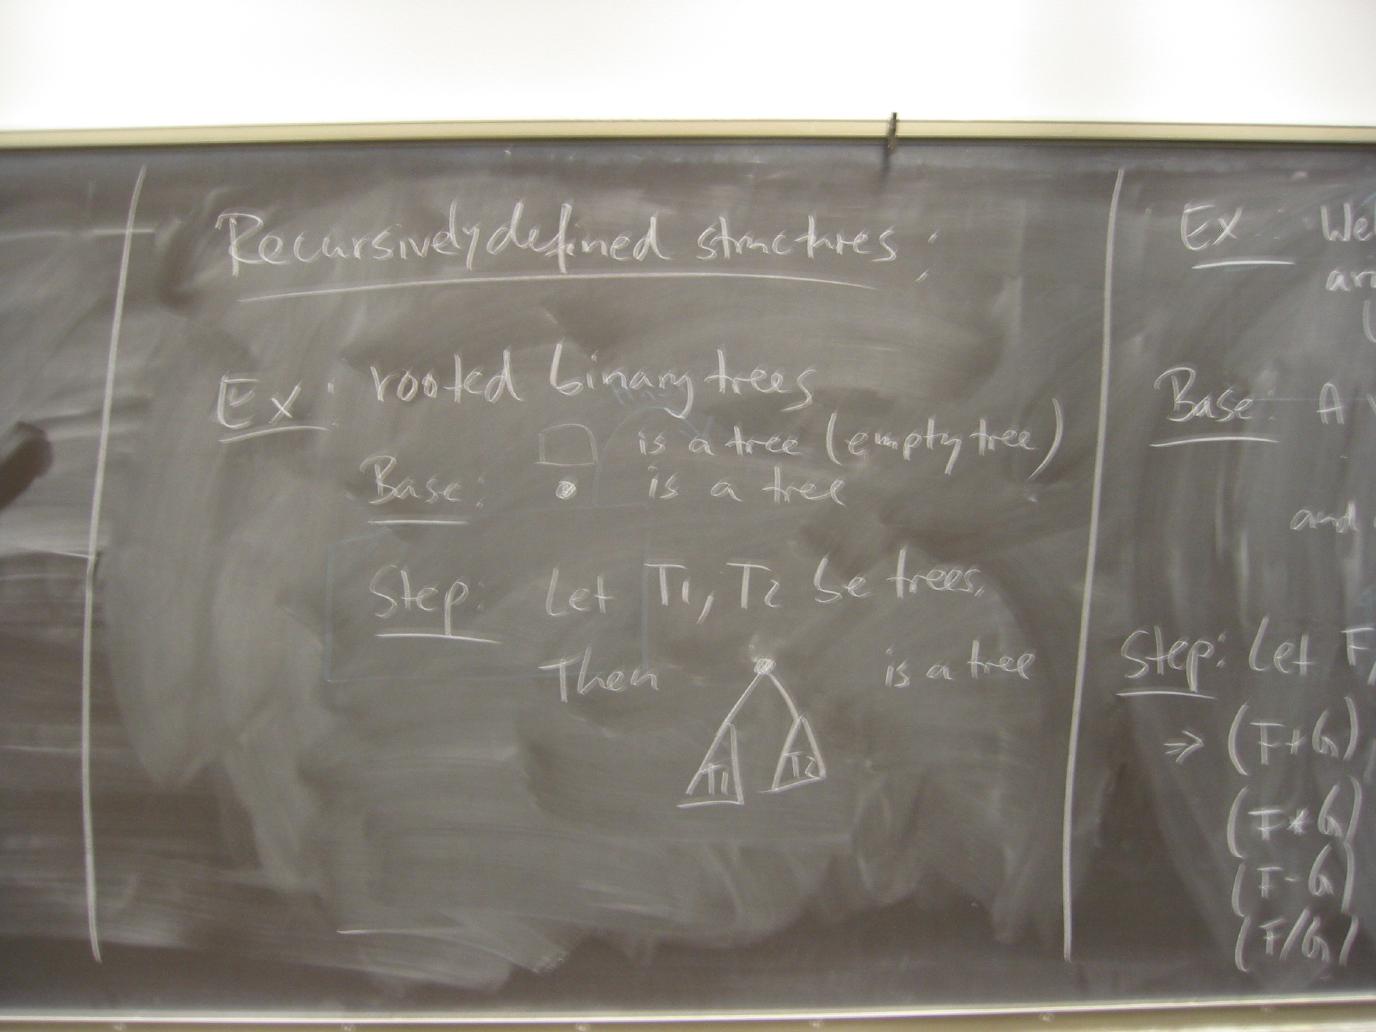 Recursively defined structures:
Ex: rooted binary trees
is a tree (empty tree)
Base: • is a tree
Step: Let T1, T2 be trees.
Then is a tree
T1 T2
Ex:
Base: A
and
Step: Let F,
⇒ (F+G)
(F*G)
(F-G)
(F/G)